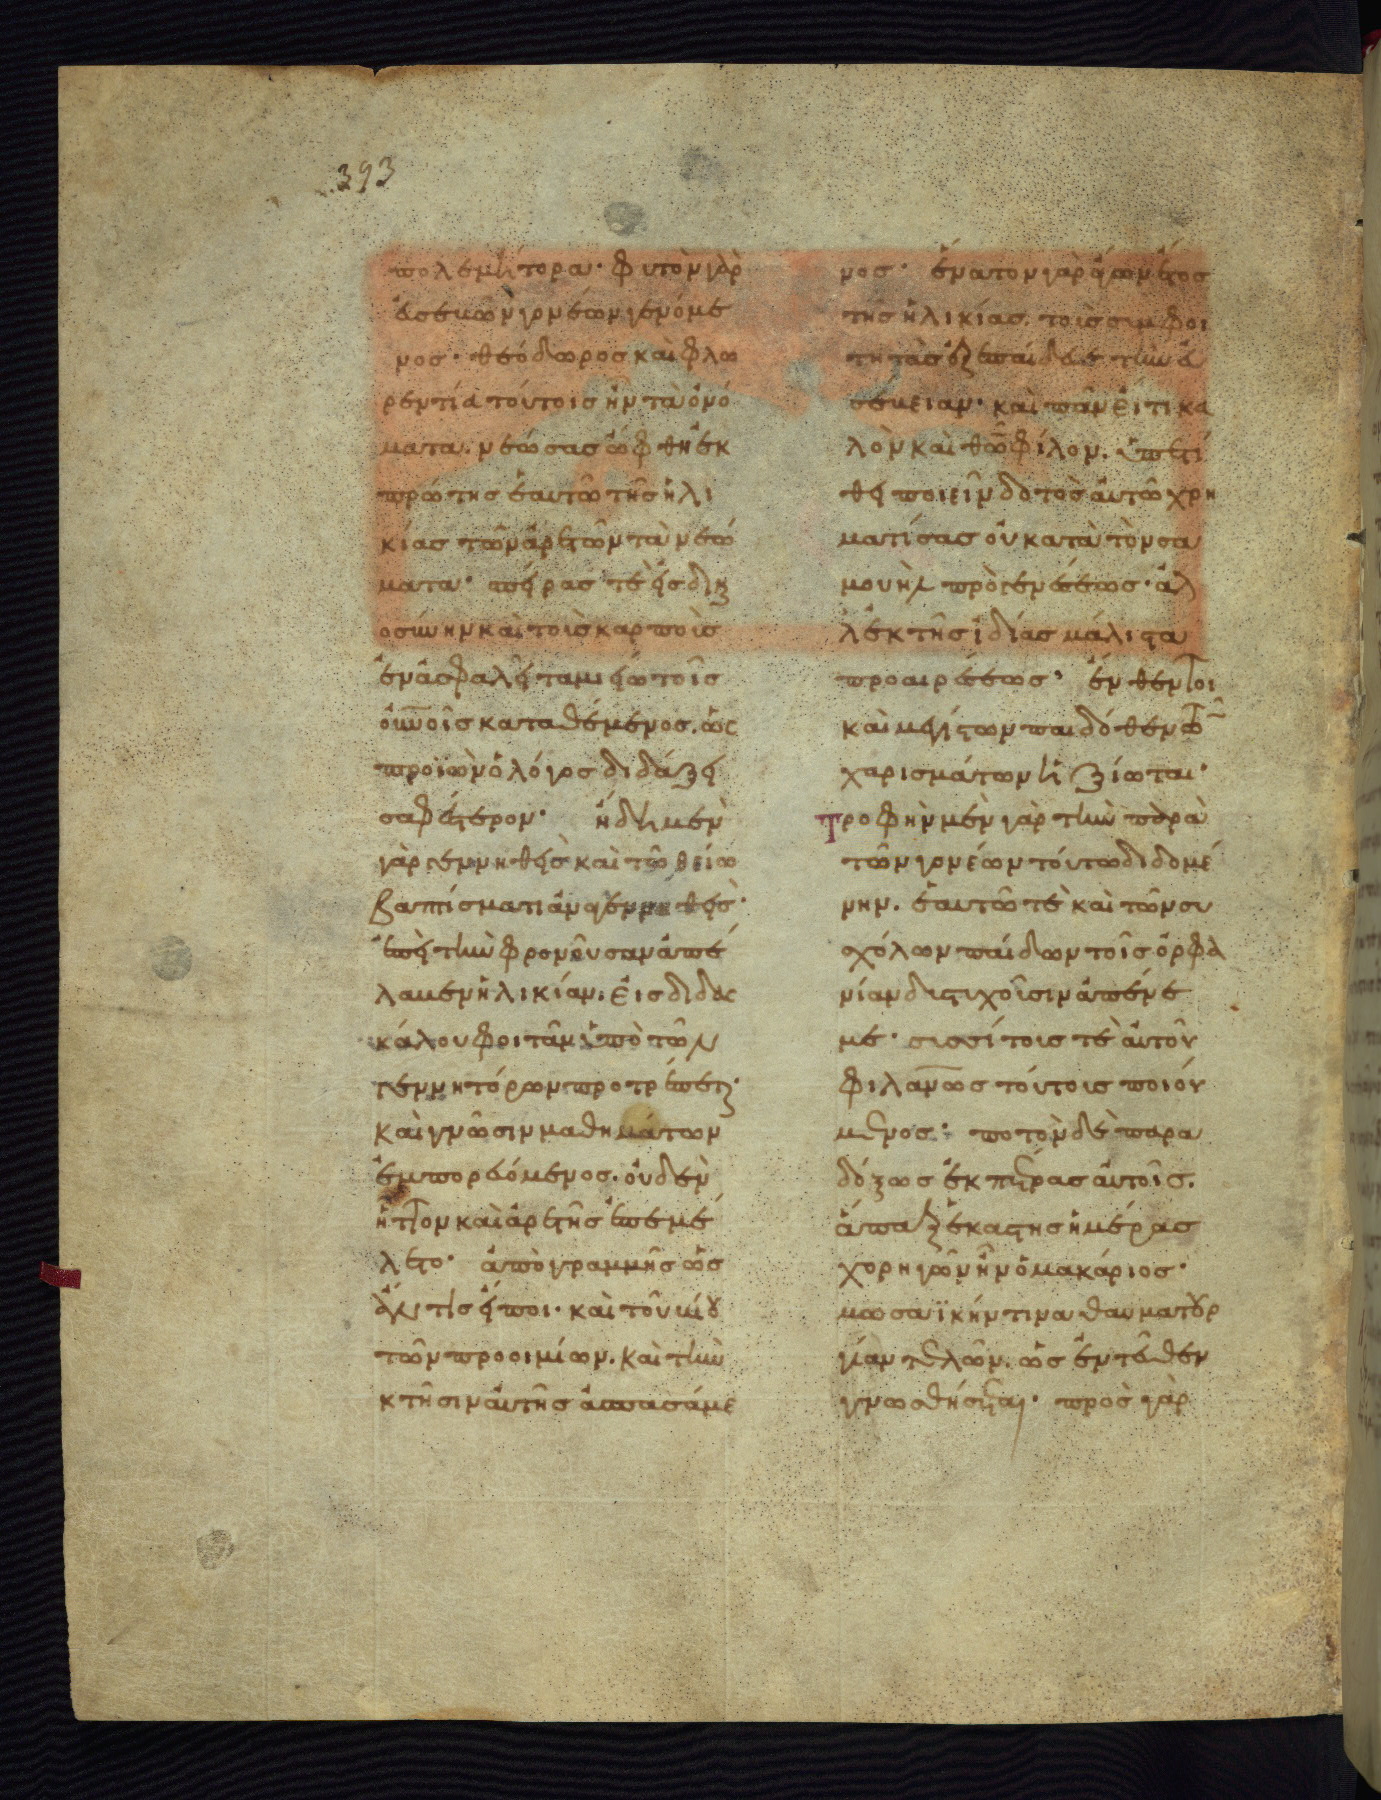 393
πολεμήτορα· φυτὸν γὰρ
ἀσεβῶν γονέων γενόμε
νος· θεόδωρος καὶ φλω
ρεντία τούτοις ἦν τὰ ὀνό
ματα· νεώσας ὤφθη ἐκ
πρώτης ἑαυτῶ τῆς ἡλι
κίας τῶν ἀρετῶν τὰ νεώ
ματα· σπείρας τὲ εἰς δικαι
οσύνην καὶ τοῖς καρποῖς
ἐν ἀσφαλεῖ ταμιείω τοῖς
οὐνοῖς καταθέμενος. ὡς
προϊὼν ὁ λόγος διδάξει
σαφέστερον· ἤδη μὲν
γὰρ γεννηθεὶς καὶ τῶ θείω
βαπτίσματι ἀναγεννηθεὶς·
ἐπεὶ τὴν φρονοῦσαν ἀπέ
λαβεν ἡλικίαν. εἰς διδας
κάλου φοιτᾶν ὑπὸ τῶν
γεννητόρων προτρέπεται·
καὶ γνῶσιν μαθημάτων
ἐμπορευόμενος. οὐδὲν
ἧττον καὶ ἀρετῆς ἐπεμέ
λετο· ἀπὸ γραμμῆς ὡς
ἄν τις εἴποι· καὶ τοῦ νῦν
τῶν προοιμίων. καὶ τὴν
κτῆσιν αὐτῆς ἀσπασάμε
νος· ἔνατον γὰρ ἄγων ἔτος
τῆς ἡλικίας. τοῖς συμφοι
τηταῖς ἐξεπαίδευε τὴν εὐ
σέβειαν· καὶ πᾶν εἴ τι κα
λὸν καὶ θῶ φίλον. ὑπετί
θει ποιεῖν δοτὸς αὐτῶ χρη
ματίσας οὐ κατὰ τὸν σα
μουὴλ πρὸ γεννέσεως· ἀλ
λ' ἐκ τῆς ἰδίας μάλιστα
προαιρέσεως· ἐντεῦθέν τοι
καὶ μεγίστων παιδόθεν τῶν
χαρισμάτων ἠξίωται·
Τροφὴν μὲν γὰρ τὴν παρὰ
τῶν γονέων τούτω διδομέ
νην. ἑαυτῶ τὲ καὶ τῶν συ
σχόλων παίδων τοῖς ὀρφα
νίαν δυστυχοῦσιν ἀπένε
με· συσσίτους τὲ αὐτοῦ
φιλανως τούτοις ποιού
μενος· ποτὸν δὲ παρα
δόξως ἐκ πέτρας αὐτοῖς.
ἅπαξ ἑκάστης ἡμέρας
χορηγῶν ἦν ὁ μακάριος·
μωσαϊκήν τινα θαυματουρ
γίαν τελῶν. ὡς ἐντεῦθεν
γνωσθήσεται· πρὸς γὰρ